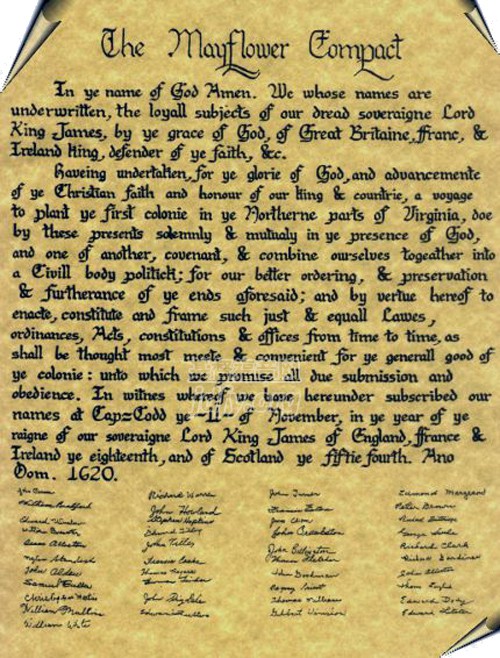 The Mayflower Compact
In ye name of God Amen. We whose names are
underwritten, the loyall subjects of our dread soveraigne Lord
King James, by ye grace of God, of Great Britaine, Franc, &
Ireland king, defender of ye faith, &c.
Haveing undertaken, for ye glorie of God, and advancemente
of ye Christian faith and honour of our king & countrie, a voyage
to plant ye first colonie in ye Northerne parts of Virginia, doe
by these presents solemnly & mutualy in ye presence of God,
and one of another, covenant, & combine ourselves togeather into
a Civill body politick; for our better ordering, & preservation
& furtherance of ye ends aforesaid; and by vertue hereof to
enacte, constitute and frame such just & equall Lawes,
ordinances, Acts, constitutions & offices from time to time, as
shall be thought most meete & convenient for ye generall good of
ye colonie: unto which we promise all due submission and
obedience. In witnes whereof we have hereunder subscribed our
names at Cap=Codd ye ~11~ of November, in ye year of ye
raigne of our soveraigne Lord King James of England, ffrance &
Ireland ye eighteenth, and of Scotland ye fiftie fourth. Ano
Dom. 1620.
William Bradford
Edward Winslow
Isaac Allerton
John Alden
Samuel Fuller
William Mullins
William White
Richard Warren
John Howland
Stephen Hopkins
John Tilley
John Turner
Francis Eaton
John Crackston
John Billington
Edmund Margeson
Peter Brown
George Soule
Richard Clark
Richard Gardiner
John Allerton
Thomas English
Edward Doty